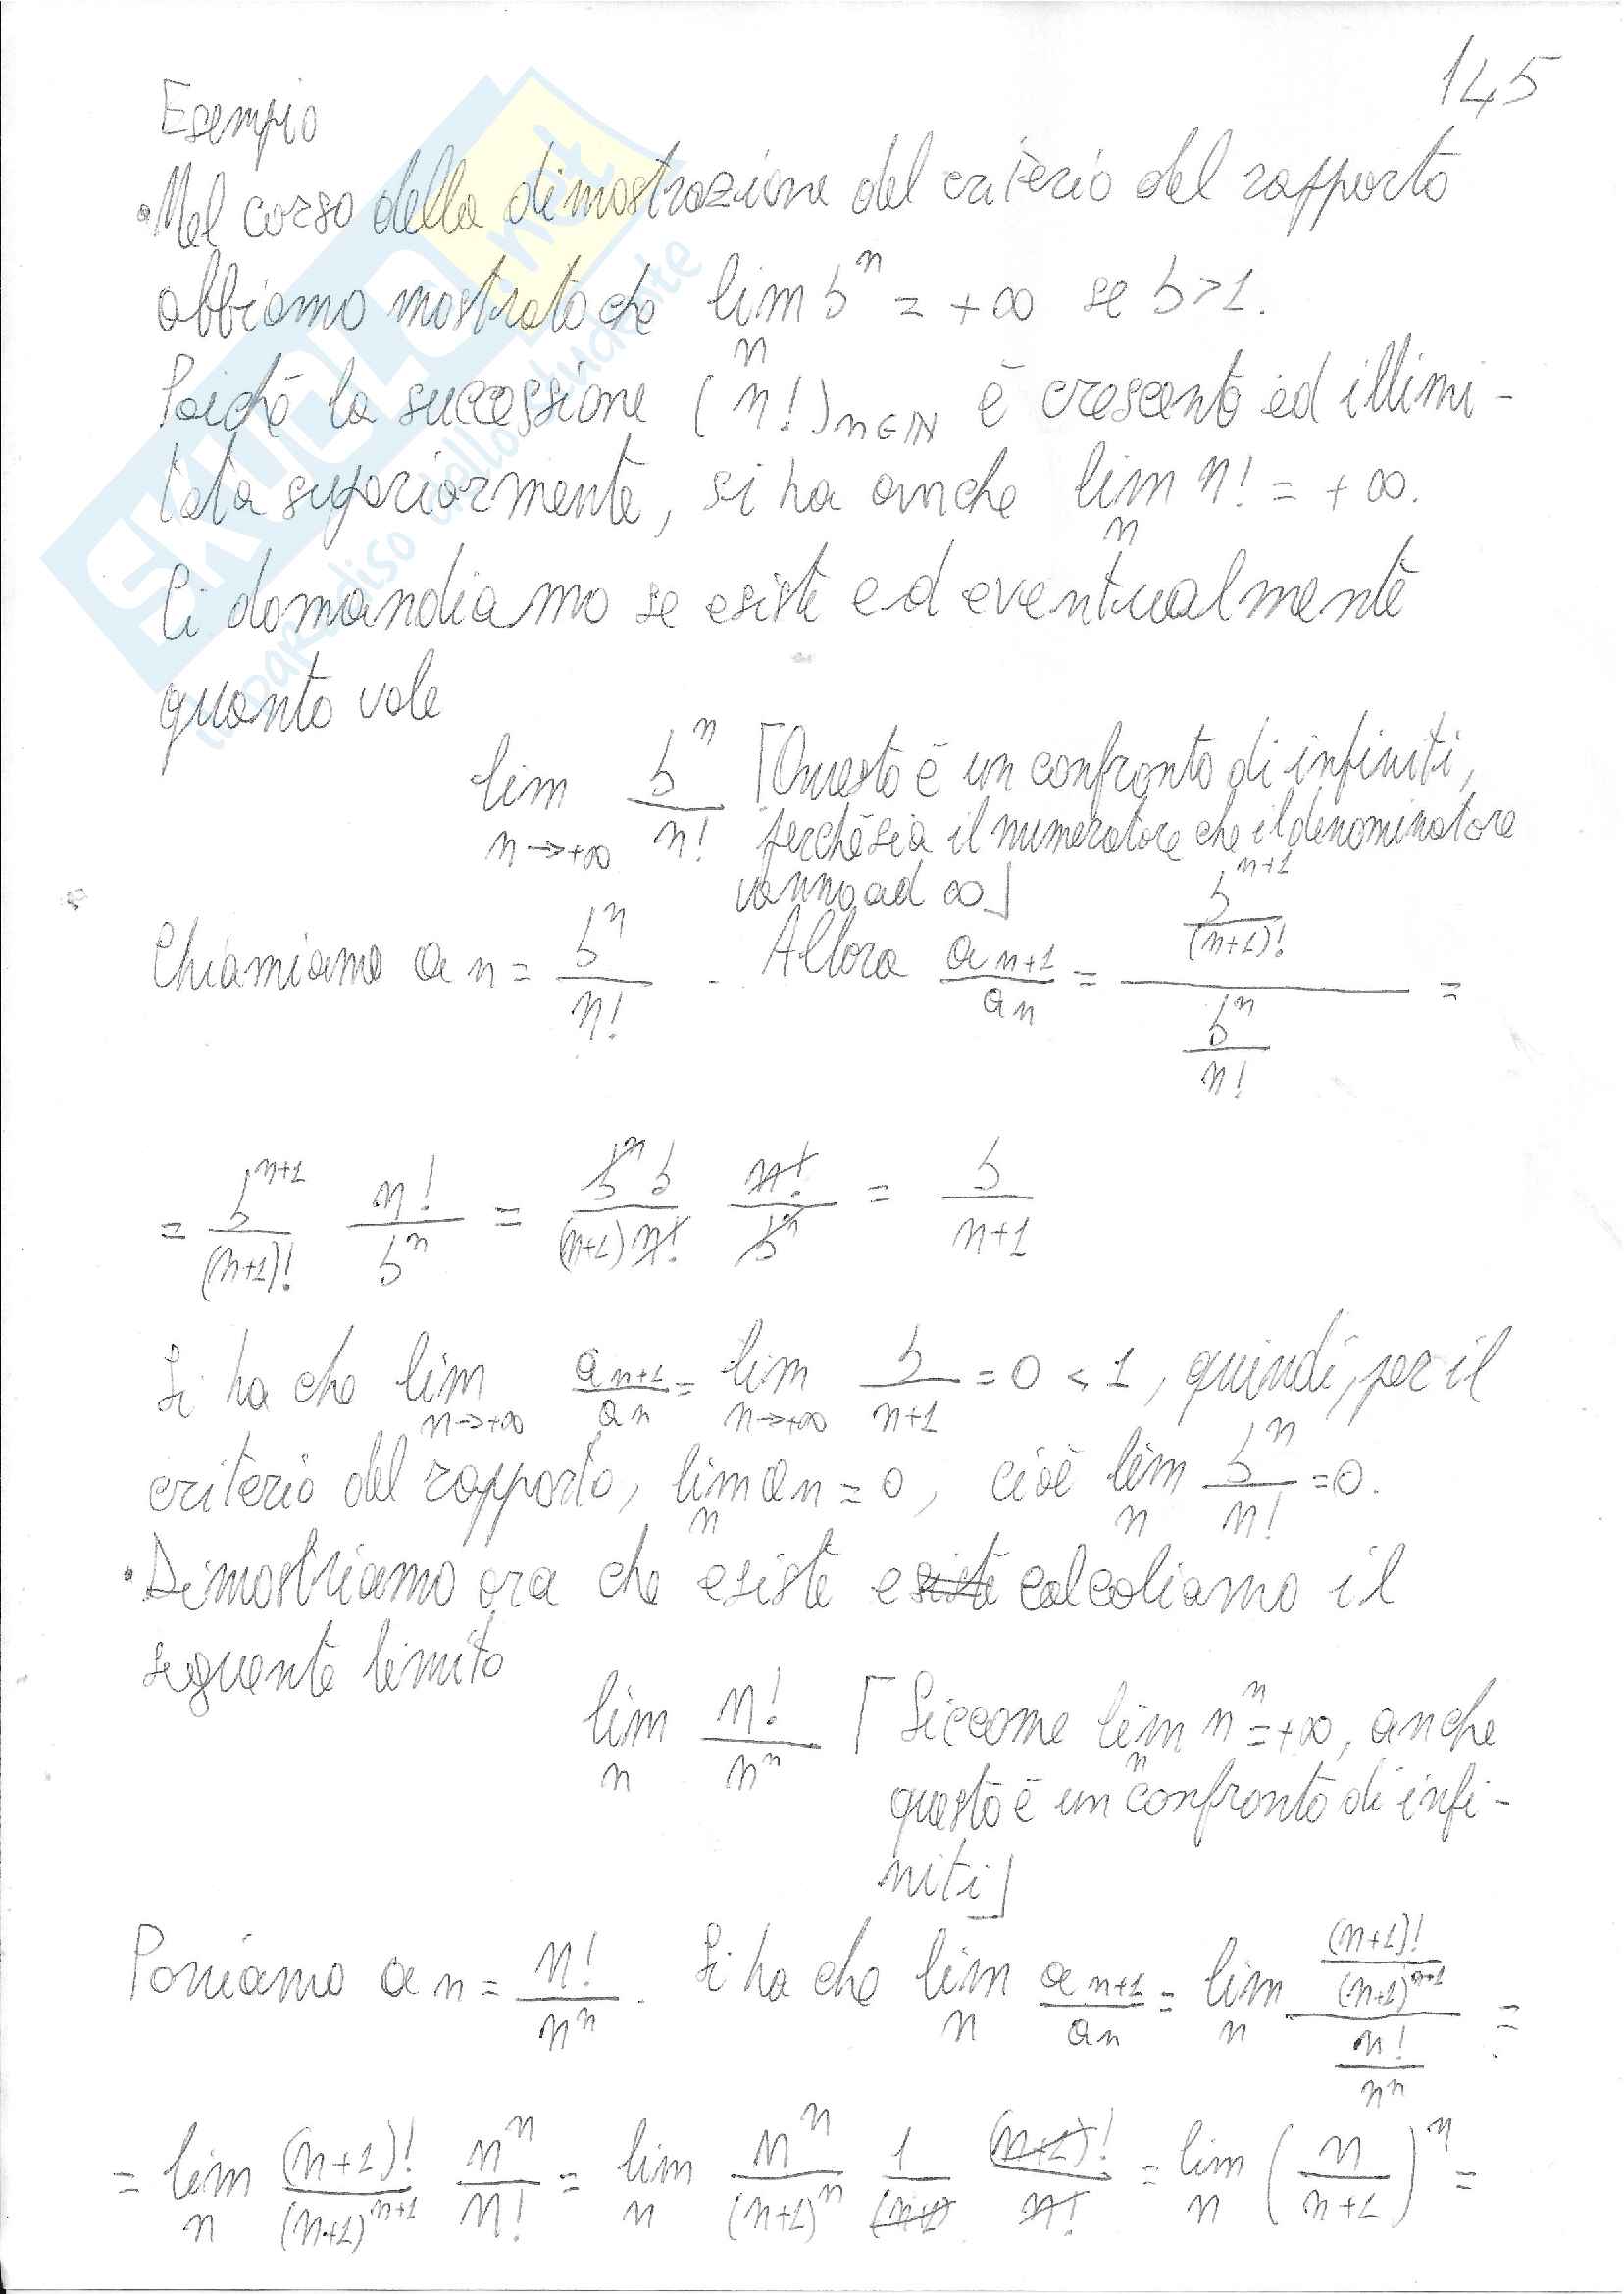 145
Esempio
• Nel corso della dimostrazione del criterio del rapporto
abbiamo mostrato che lim_n b^n = +∞ se b>1.
Poiché la successione (n!)_{n∈ℕ} è crescente ed illimi-
tata superiormente, si ha anche lim_n n! = +∞.
Ci domandiamo se esiste ed eventualmente
quanto vale
lim_{n→+∞} b^n/n! ⌈Questo è un confronto di infiniti,
perché sia il numeratore che il denominatore
vanno ad ∞⌋
Chiamiamo a_n = b^n/n! . Allora a_{n+1}/a_n = (b^{n+1}/(n+1)!)/(b^n/n!) =
= b^{n+1}/(n+1)! n!/b^n = b^n b/((n+1) n!) n!/b^n = b/(n+1)
Si ha che lim_{n→+∞} a_{n+1}/a_n = lim_{n→+∞} b/(n+1) = 0 < 1, quindi, per il
criterio del rapporto, lim_n a_n = 0, cioè lim_n b^n/n! = 0.
• Dimostriamo ora che esiste e calcoliamo il
seguente limite
lim_n n!/n^n ⌈Siccome lim_n n^n = +∞, anche
questo è un confronto di infi-
niti⌋
Poniamo a_n = n!/n^n . Si ha che lim_n a_{n+1}/a_n = lim_n ((n+1)!/(n+1)^{n+1})/(n!/n^n) =
= lim_n (n+1)!/(n+1)^{n+1} n^n/n! = lim_n n^n/(n+1)^n 1/(n+1) (n+1)!/n! = lim_n (n/(n+1))^n =
SKUOLA.net
il paradiso dello studente